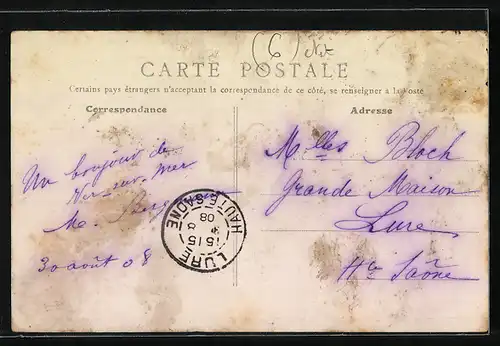 (6)
CARTE POSTALE
Certains pays étrangers n'acceptant la correspondance de ce côté, se renseigner à la Poste
Correspondance
Adresse
Un bonjour de
Ver-sur-Mer
M.
30 août 08
Melles Bloch
Grande Maison
Lure
Hte Saône
LURE
HAUTE-SAÔNE
15 15
8
08